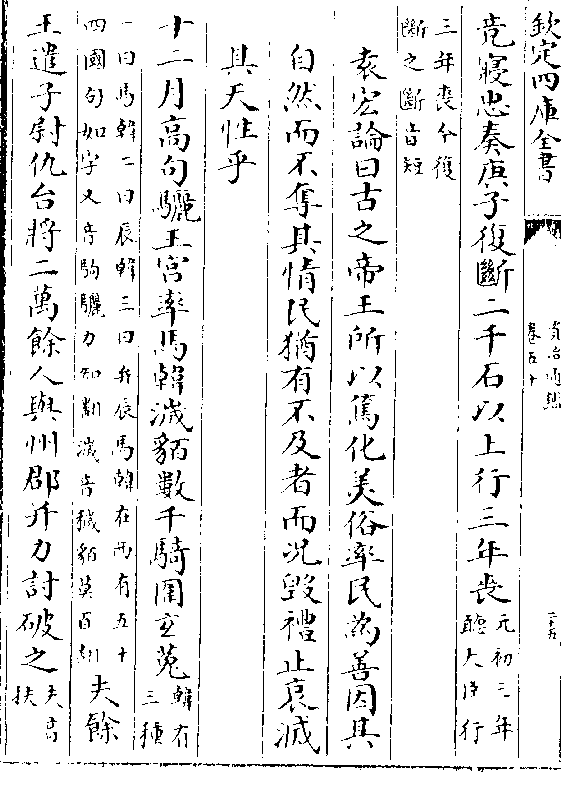 欽定四庫全書
資治通鑑
卷五十
二十五
竟寢忠奏庚子復斷二千石以上行三年喪元初三年聽大臣行
三年喪今復斷之斷音短
袁宏論曰古之帝王所以篤化美俗率民為善因其
自然而不奪其情民猶有不及者而况毁禮止哀滅
其天性乎
十二月高句驪王宫率馬韓濊貊數千騎圍玄菟韓有三種
一曰馬韓二曰辰韓三曰弁辰馬韓在西有五十四國句如字又音駒驪力知翻濊音穢貊莫百翻夫餘
王遣子尉仇台將二萬餘人與州郡并力討破之夫音扶